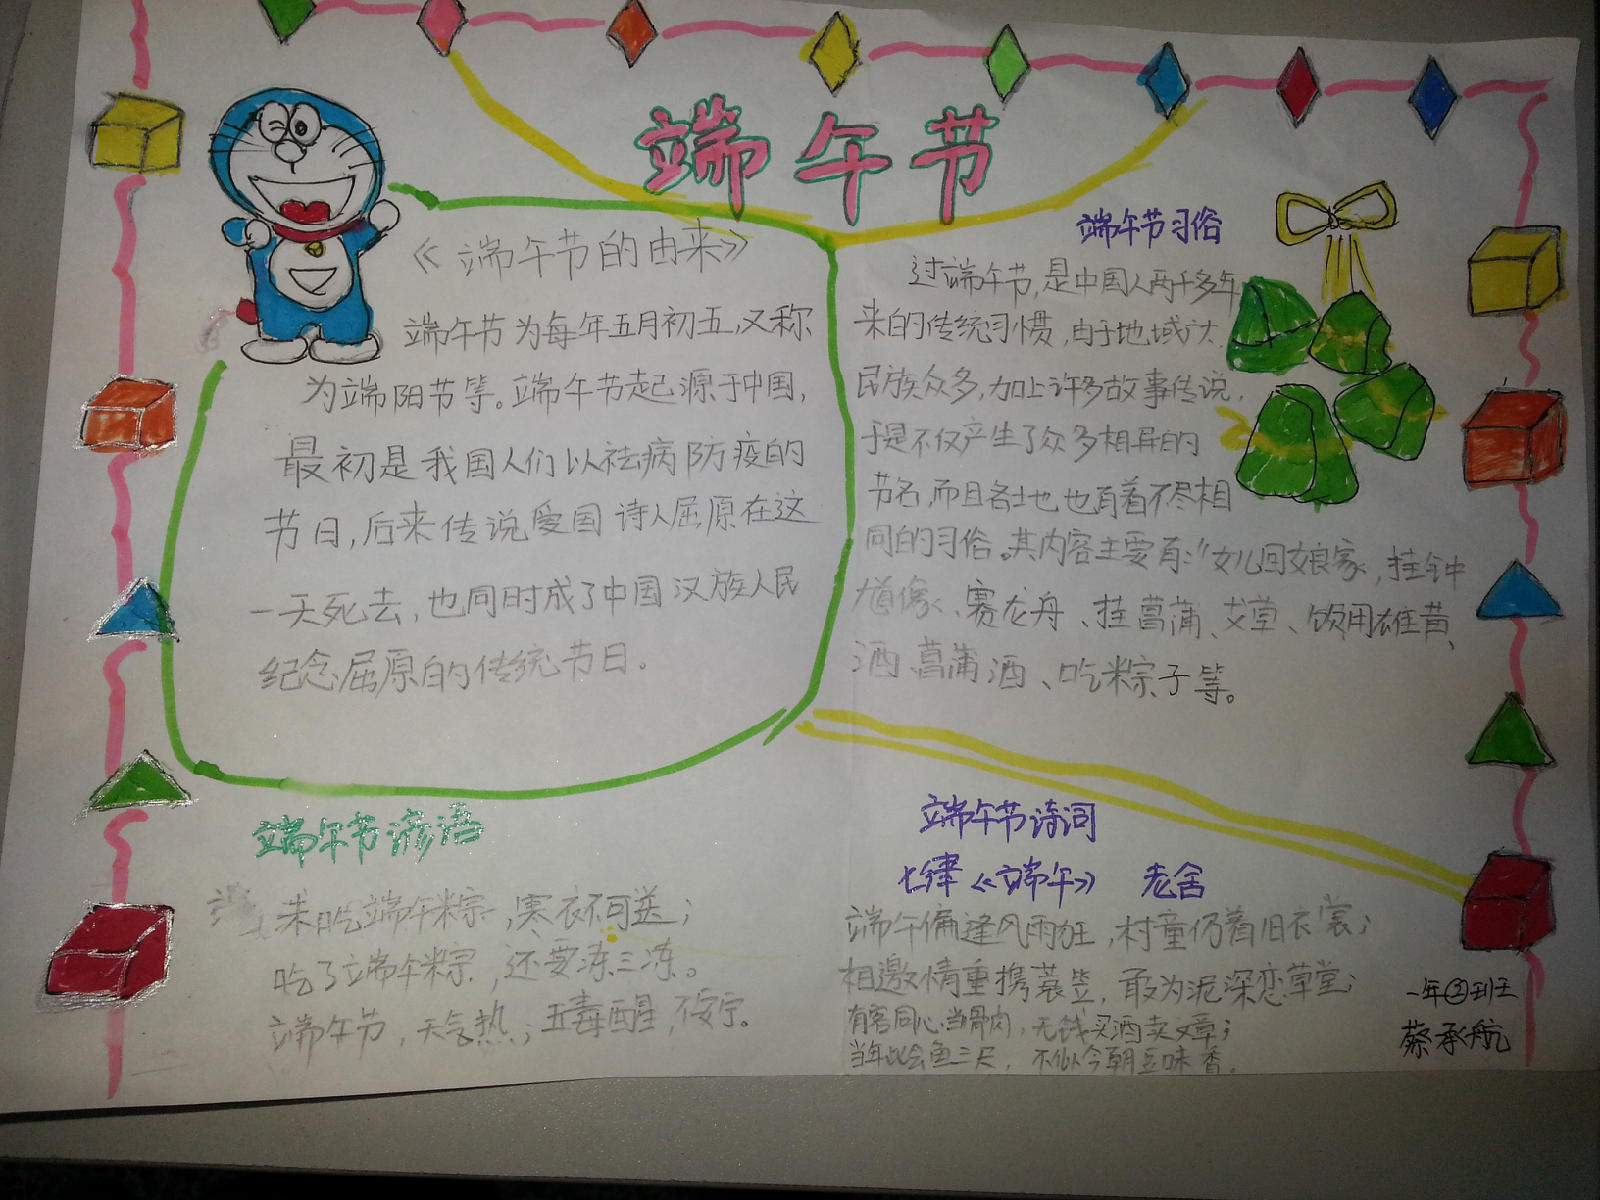 端午节
《端午节的由来》
端午节为每年五月初五,又称
为端阳节等。端午节起源于中国,
最初是我国人们以祛病防疫的
节日,后来传说爱国诗人屈原在这
一天死去,也同时成了中国汉族人民
纪念屈原的传统节日.
端午节习俗
过端午节,是中国人两千多年
来的传统习惯,由于地域广大.
民族众多,加上许多故事传说.
于是不仅产生了众多相异的
节名,而且各地也有着不尽相
同的习俗。其内容主要有:“女儿回娘家,挂钟
馗像、赛龙舟、挂菖蒲、艾草、饮用雄黄、
酒、菖蒲酒、吃粽子等。
端午节谚语
未吃端午粽,寒衣不可送;
吃了端午粽,还要冻三冻。
端午节,天气热;五毒醒,不安宁。
端午节诗词
七律《端午》 老舍
端午偏逢风雨狂,村童仍着旧衣裳;
相邀情重携蓑笠,敢为泥深恋草堂;
有客同心当骨肉,无钱买酒卖文章;
当年此会鱼三尺,不似今朝豆味香.
一年③班
蔡承航